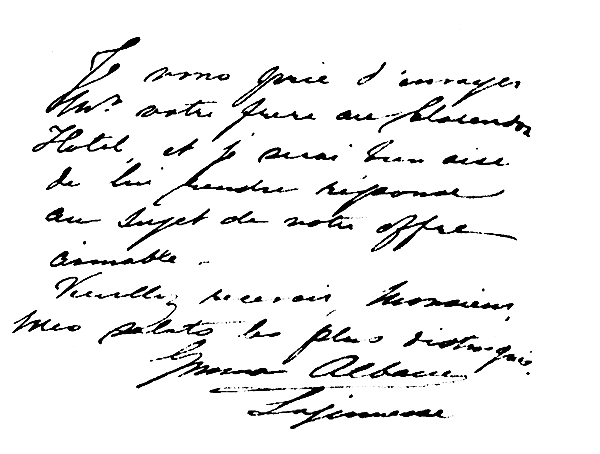 Je vous prie d'envoyer
Mr. votre frère au Clarendon
Hotel, et je serai bien aise
de lui rendre réponse
au sujet de votre offre
aimable.
Veuillez recevoir, Monsieur,
mes saluts les plus distingués.
Emma Albani
Lajeunesse